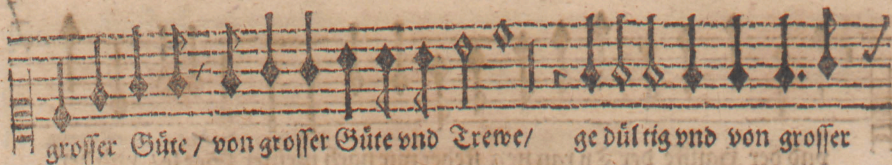 groſſer Güte / von groſſer Güte vnd Trewe / ge dül tig vnd von groſſer